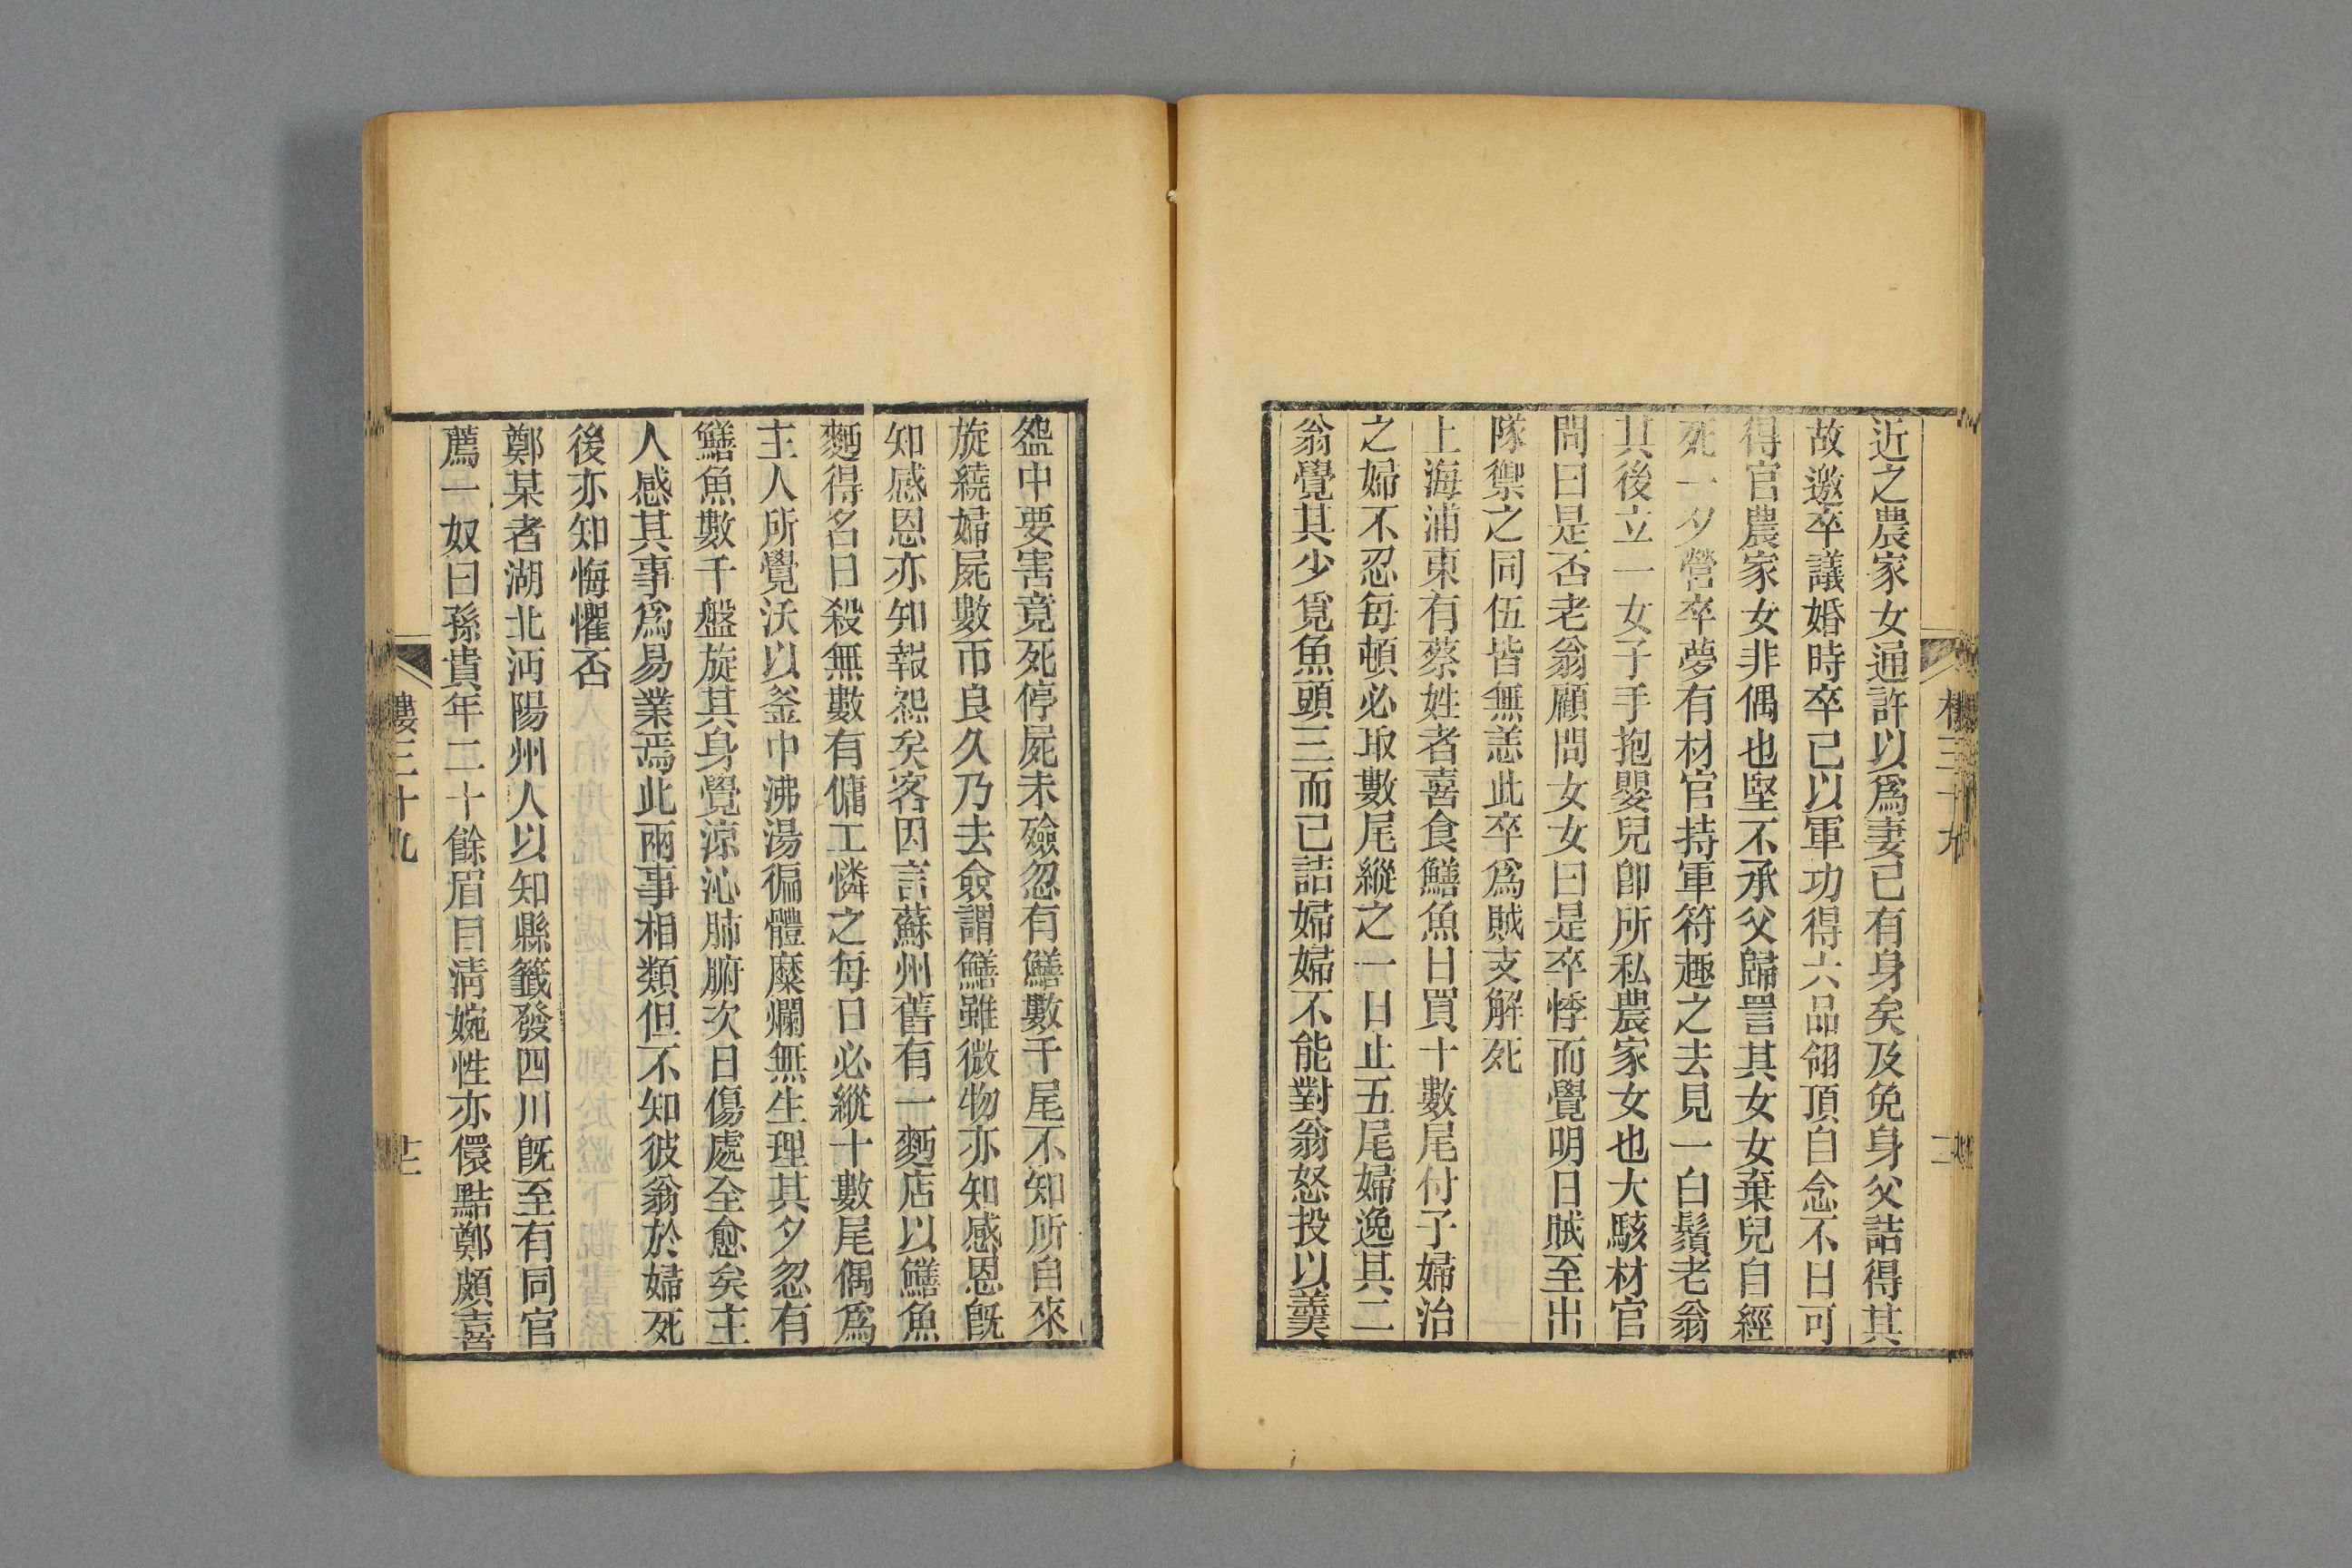 近之農家女通許以爲妻已有身矣及免身父詰得其
故邀卒議婚時卒已以軍功得六品翎頂自念不日可
得官農家女非偶也堅不承父歸詈其女女棄兒自經
死一夕營卒夢有材官持軍符趣之去見一白鬚老翁
其後立一女子手抱嬰兒卽所私農家女也大駭材官
問曰是否老翁顧問女女曰是卒悸而覺明日賊至出
隊禦之同伍皆無恙此卒爲賊支解死
上海浦東有蔡姓者喜食鱔魚日買十數尾付子婦治
之婦不忍每頓必取數尾縱之一日止五尾婦逸其二
翁覺其少覓魚頭三而已詰婦婦不能對翁怒投以羹
盌中要害竟死停屍未殮忽有鱔數千尾不知所自來
旋繞婦屍數帀良久乃去僉謂鱔雖微物亦知感恩旣
知感恩亦知報怨矣客因言蘇州舊有一麪店以鱔魚
麪得名日殺無數有傭工憐之每日必縱十數尾偶爲
主人所覺沃以釜中沸湯徧體糜爛無生理其夕忽有
鱔魚數千盤旋其身覺涼沁肺腑次日傷處全愈矣主
人感其事爲易業焉此兩事相類但不知彼翁於婦死
後亦知悔懼否
鄭某者湖北沔陽州人以知縣籤發四川旣至有同官
薦一奴曰孫貴年二十餘眉目清婉性亦儇點鄭頗喜
樓三十九